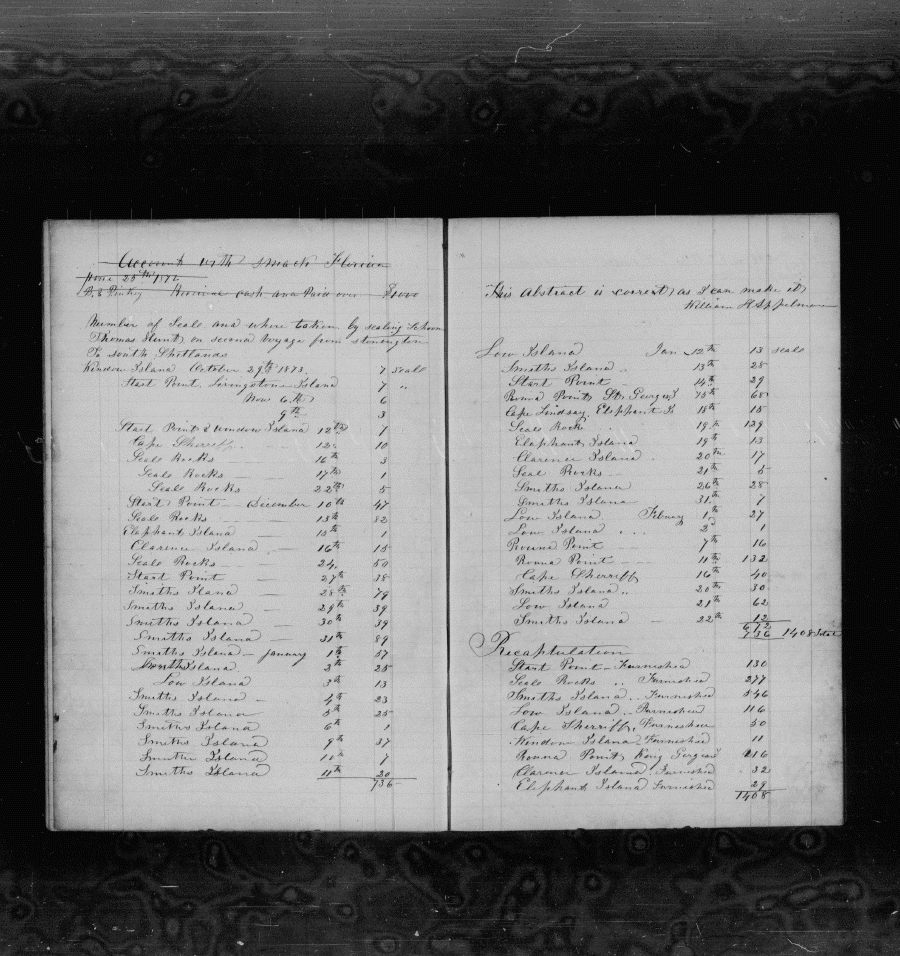 Account with smack Florida
June 25th 1872
Received cash and Paid over $1000
Number of Seals and where taken by sealing Schoon
Thomas Hunt on second Voyage from stonington
To south Shetlands
Window Island October 29th 1873. 7 seals
Start Point Livingstons Island 7 "
Nov 6th 6
9th 3
Start Point & Window Island 12th 7
Cape Sherriff 12 10
Seal Rocks 16th 3
Seal Rocks 17th 1
Seal Rocks 22th 5
Start Point December 10th 47
Seal Rocks 13th 82
Elephant Island 15th 1
Clarence Island 16th 15
Seal Rocks 24 50
Start Point 27th 38
Smiths Iland 28th 79
Smiths Island 29th 39
Smiths Island 30th 39
Smiths Island 31th 89
Smiths Island January 1th 57
Smiths Island 3th 25
Low Island 3th 13
Smiths Island 4th 23
Smiths Island 5th 25
Smiths Island 6th 1
Smiths Island 9th 37
Smiths Island 10th 7
Smiths Island 11th 20
736
This Abstract is correct as I can make it
William H Appelman
Low Island Jan 12th 13 seals
Smiths Island 13th 28
Start Point 14th 29
Round Point St Georges 15th 68
Cape Lindsay Elephant I 18th 15
Seal Rocks 19th 139
Elephant Island 19th 13
Clarence Island 20th 17
Seal Rocks 21th 5
Smiths Island 26th 28
Smiths Island 31th 7
Low Island Febuary 1th 27
Low Island 2d 1
Round Point 7th 16
Round Point 11th 132
Cape Sherriff 16th 40
Smiths Island 20th 30
Low Island 21th 62
Smiths Island 22th 12
672
736 1408 total
Recaptulation
Start Point Furnished 130
Seal Rocks Furnished 277
Smiths Island Furnished 546
Low Island Furnished 116
Cape Sherriff Furnished 50
Window Island Furnished 11
Round Point King Georges 216
Clarence Island Furnished 32
Elephant Island Furnished 29
1408